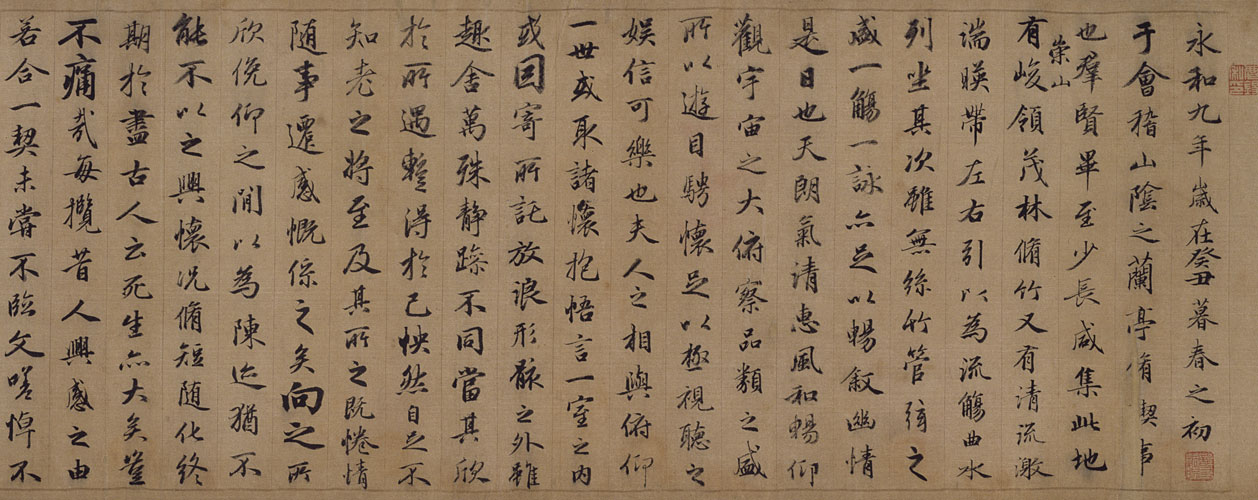 永和九年歲在癸丑暮春之初
于會稽山陰之蘭亭脩禊事
也羣賢畢至少長咸集此地
崇山
有峻領茂林脩竹又有清流激
湍暎帶左右引以為流觴曲水
列坐其次雖無絲竹管弦之
盛一觴一詠亦足以暢敘幽情
是日也天朗氣清惠風和暢仰
觀宇宙之大俯察品類之盛
所以遊目騁懷足以極視聽之
娛信可樂也夫人之相與俯仰
一世或取諸懷抱悟言一室之內
或因寄所託放浪形骸之外雖
趣舍萬殊靜躁不同當其欣
於所遇蹔得於己怏然自足不
知老之將至及其所之既惓情
随事遷感慨係之矣向之所
欣俛仰之閒以為陳迹猶不
能不以之興懷況脩短随化終
期於盡古人云死生亦大矣豈
不痛哉每攬昔人興感之由
若合一契未嘗不臨文嗟悼不